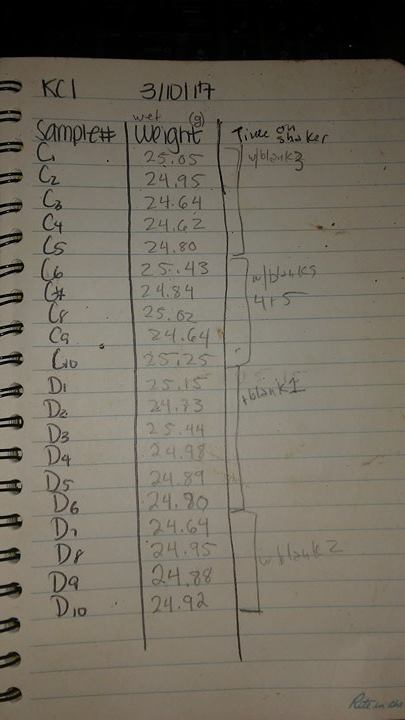 KCl 3/10/17
Sample# wet Weight (g) Time on shaker
C1 25.05 w/blank3
C2 24.95
C3 24.64
C4 24.62
C5 24.80
C6 25.43 w/blanks
24.84 4+5
C8 25.02
C9 24.64
C10 25.25
D1 25.15 blank1
D2 24.73
D3 25.44
D4 24.98
D5 24.89
D6 24.80
D7 24.64
D8 24.95 w blank2
D9 24.88
D10 24.92
Rite in the